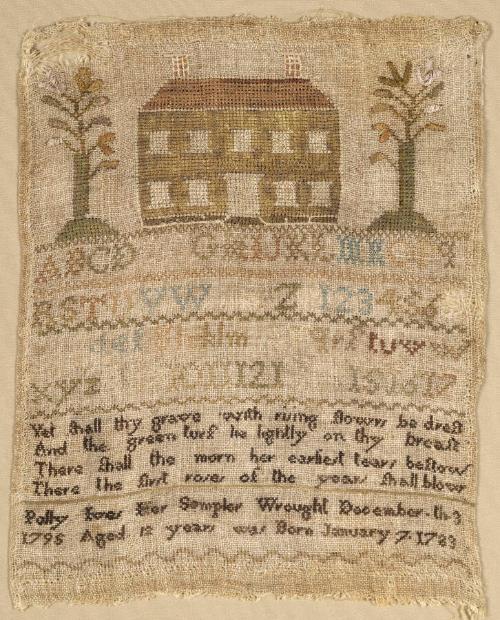 ABCD G IJKLM
RSTUVW Z 123456
def klm q r s tuvw
xyz 121 151617
Yet shall thy grave with rising flowrs be drest
And the green turf lie lightly on thy breast
There shall the morn her earliest tears bestow
There the first roses of the year shall blow
Polly Ives Her Sampler Wrought December th 3
1795 Aged 12 years was Born January 7 1783